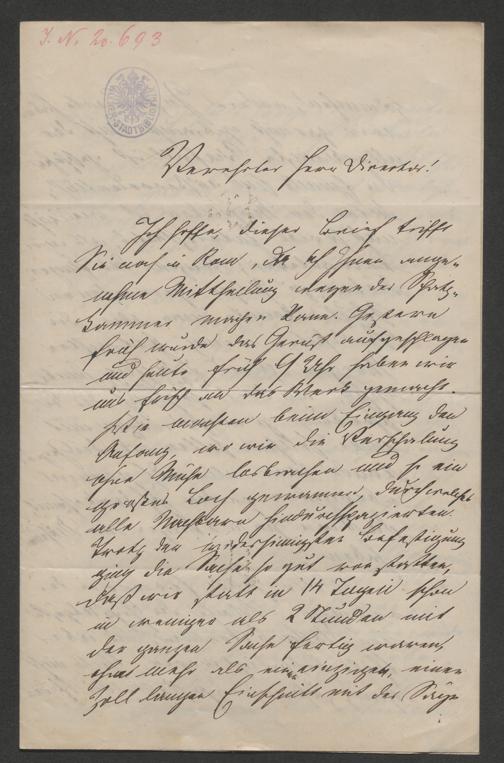 J. N. 20.693
STADTBIBLIOTHEK
Verehrter Herr Director!
Ich hoffe, dieser Brief trifft
Sie noch in Rom, da ich Ihnen ange-
nehme Mittheilung wegen der Schatz-
kammer machen kann. Gestern
früh wurde das Gerüst aufgeschlagen
und heute früh 9 Uhr haben wir
uns frisch an das Werk gemacht.
Wir machten beim Eingang den
Anfang, wo wir die Verschalung
ohne Mühe losbrachen und so ein
grosses Loch gewannen, durch welches
alle hindurchspazierten.
Trotz der Befestigung
ging die Sache so gut von statten,
dass wir statt in 14 Tagen schon
in weniger als 2 Stunden mit
der ganzen Sache fertig waren,
ohne mehr als einen einzigen, einen
Zoll langen Einschnitt mit der Säge